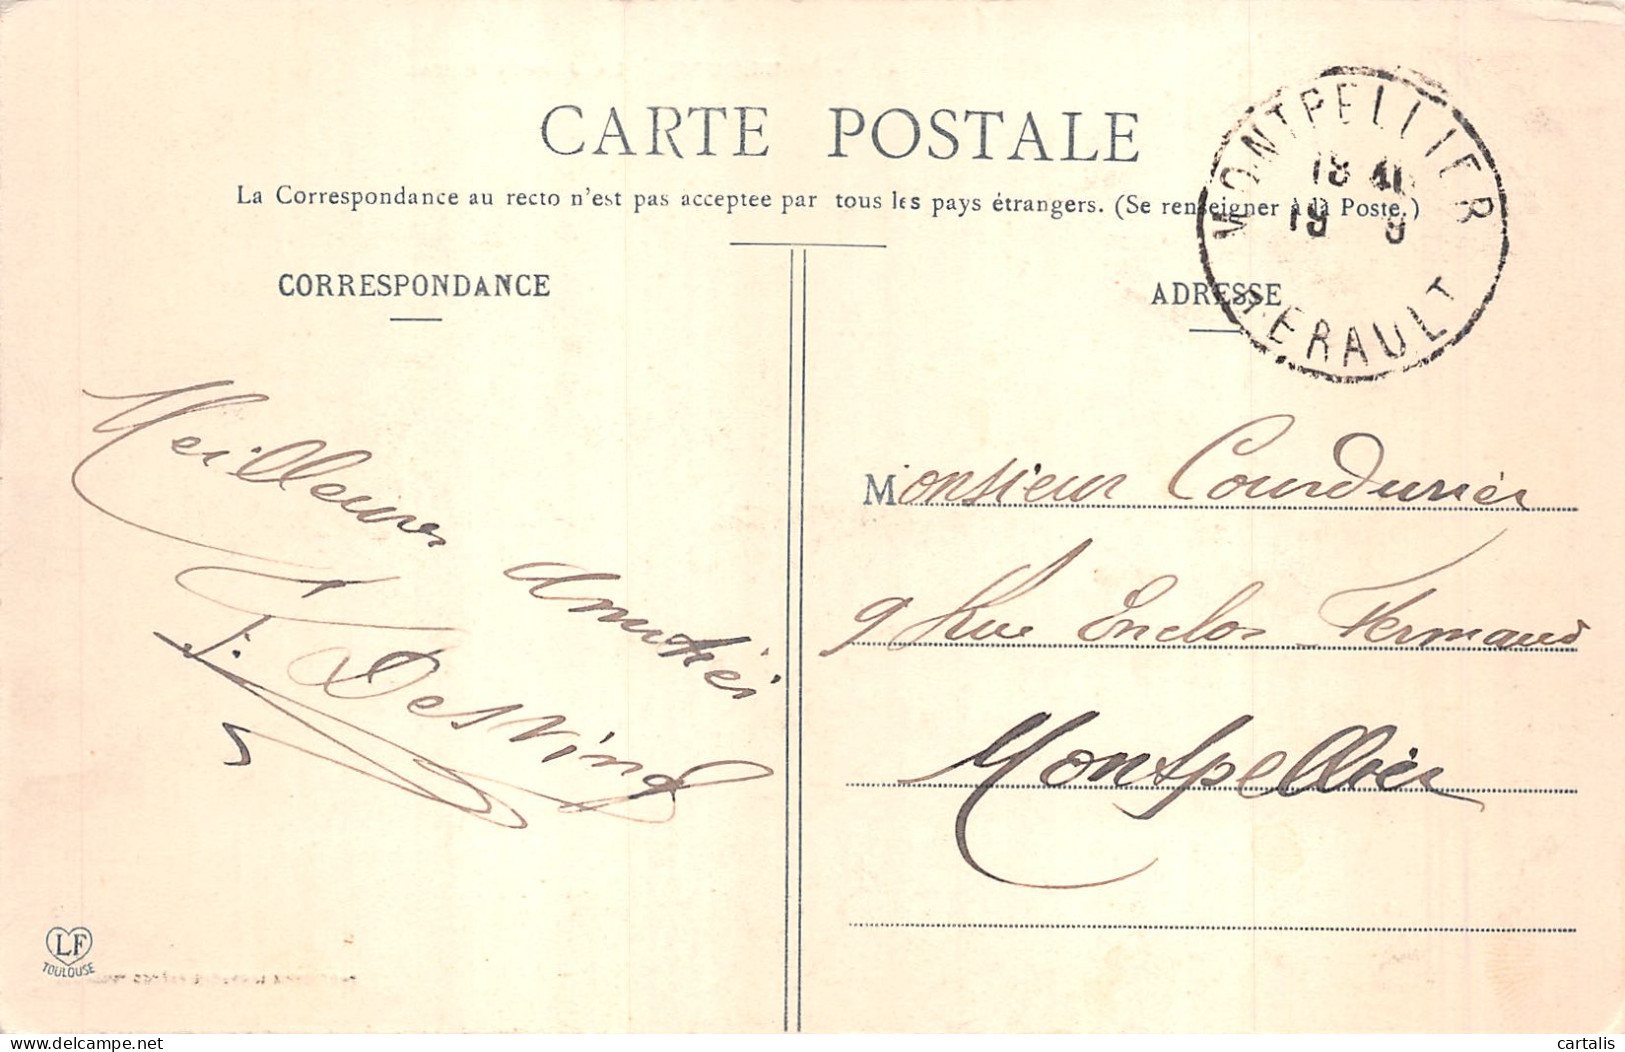 CARTE POSTALE
La Correspondance au recto n'est pas acceptee par tous les pays étrangers. (Se renseigner à la Poste.)
MONTPELLIER
18
19 8
HERAULT
CORRESPONDANCE
ADRESSE
Meilleures Amitiés
Monsieur Courdurier
9 Rue Enclos Fermaud
Montpellier
LF
TOULOUSE
delcampe.net
cartalis